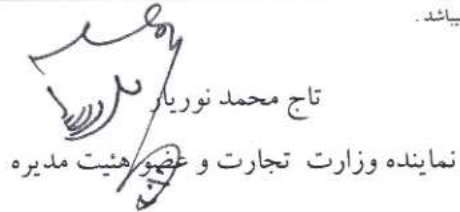 یباشد.
تاج محمد نوریار
نماینده وزارت تجارت و عضو هئیت مدیره